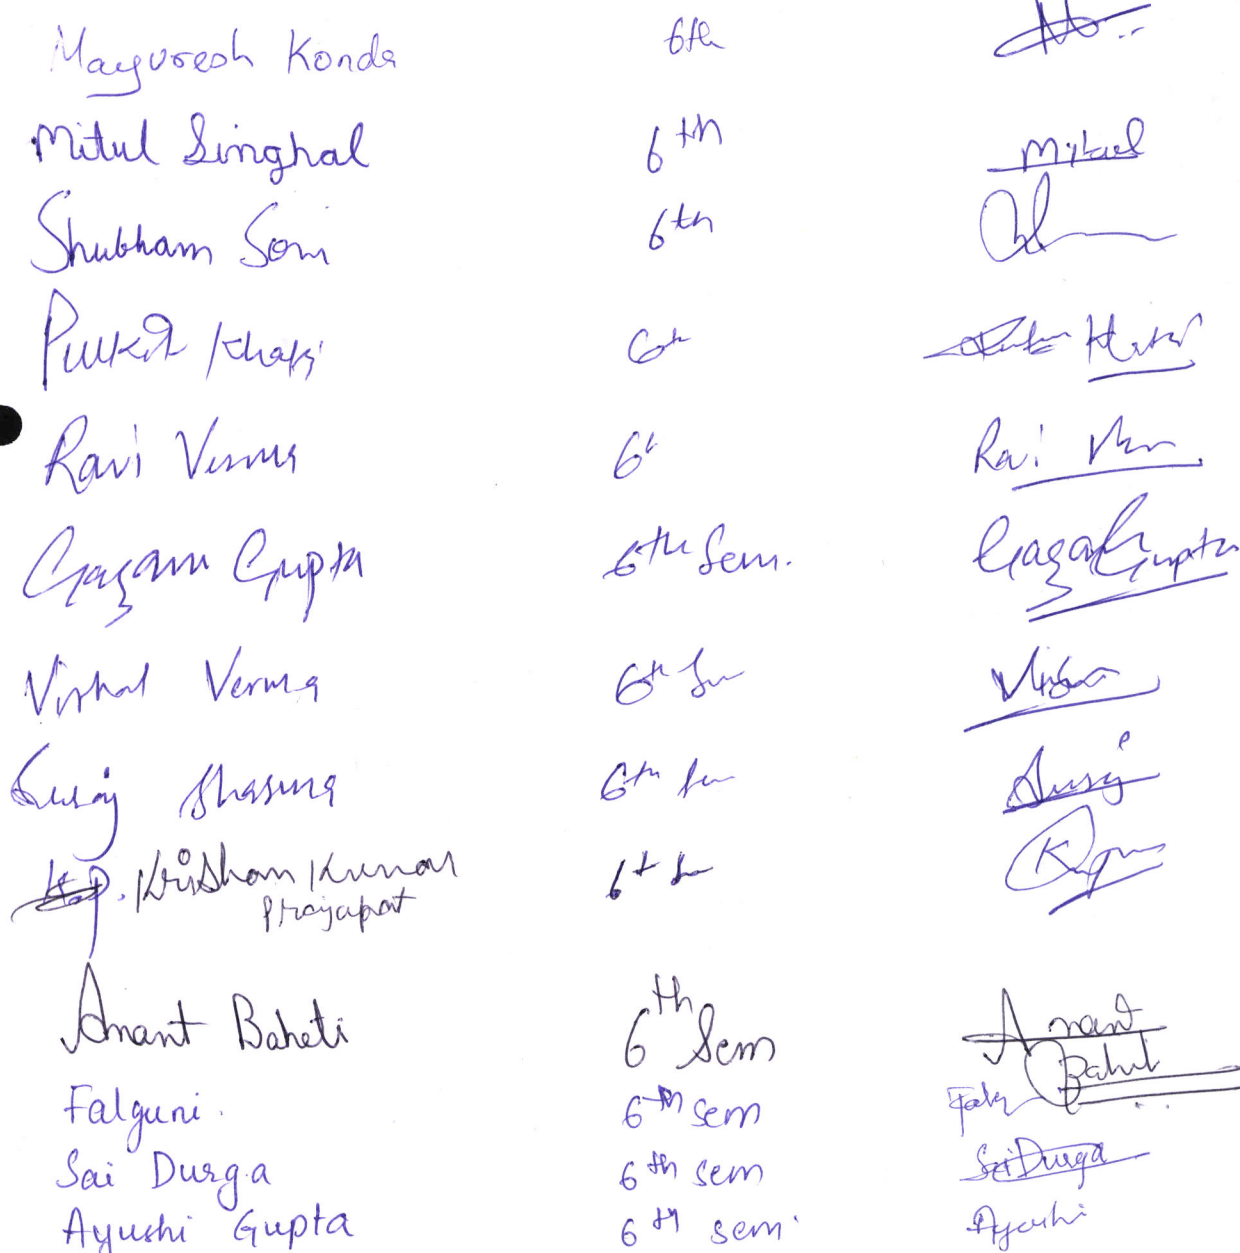 Mayuresh Konda 6th
Mitul Singhal 6th Mitul
Shubham Soni 6th
Pulkit 6th
Ravi Verma 6th Ravi
Gagan Gupta 6th Sem. Gagan Gupta
Vishal Verma 6th Sem
Suraj Sharma 6th Sem Suraj
K.P. Krishan Kumar 6th Sem
Prajapat
Anant Baheti 6th Sem Anant
Baheti
Falguni. 6th sem
Sai Durga 6th sem Sai Durga
Ayushi Gupta 6th sem Ayushi